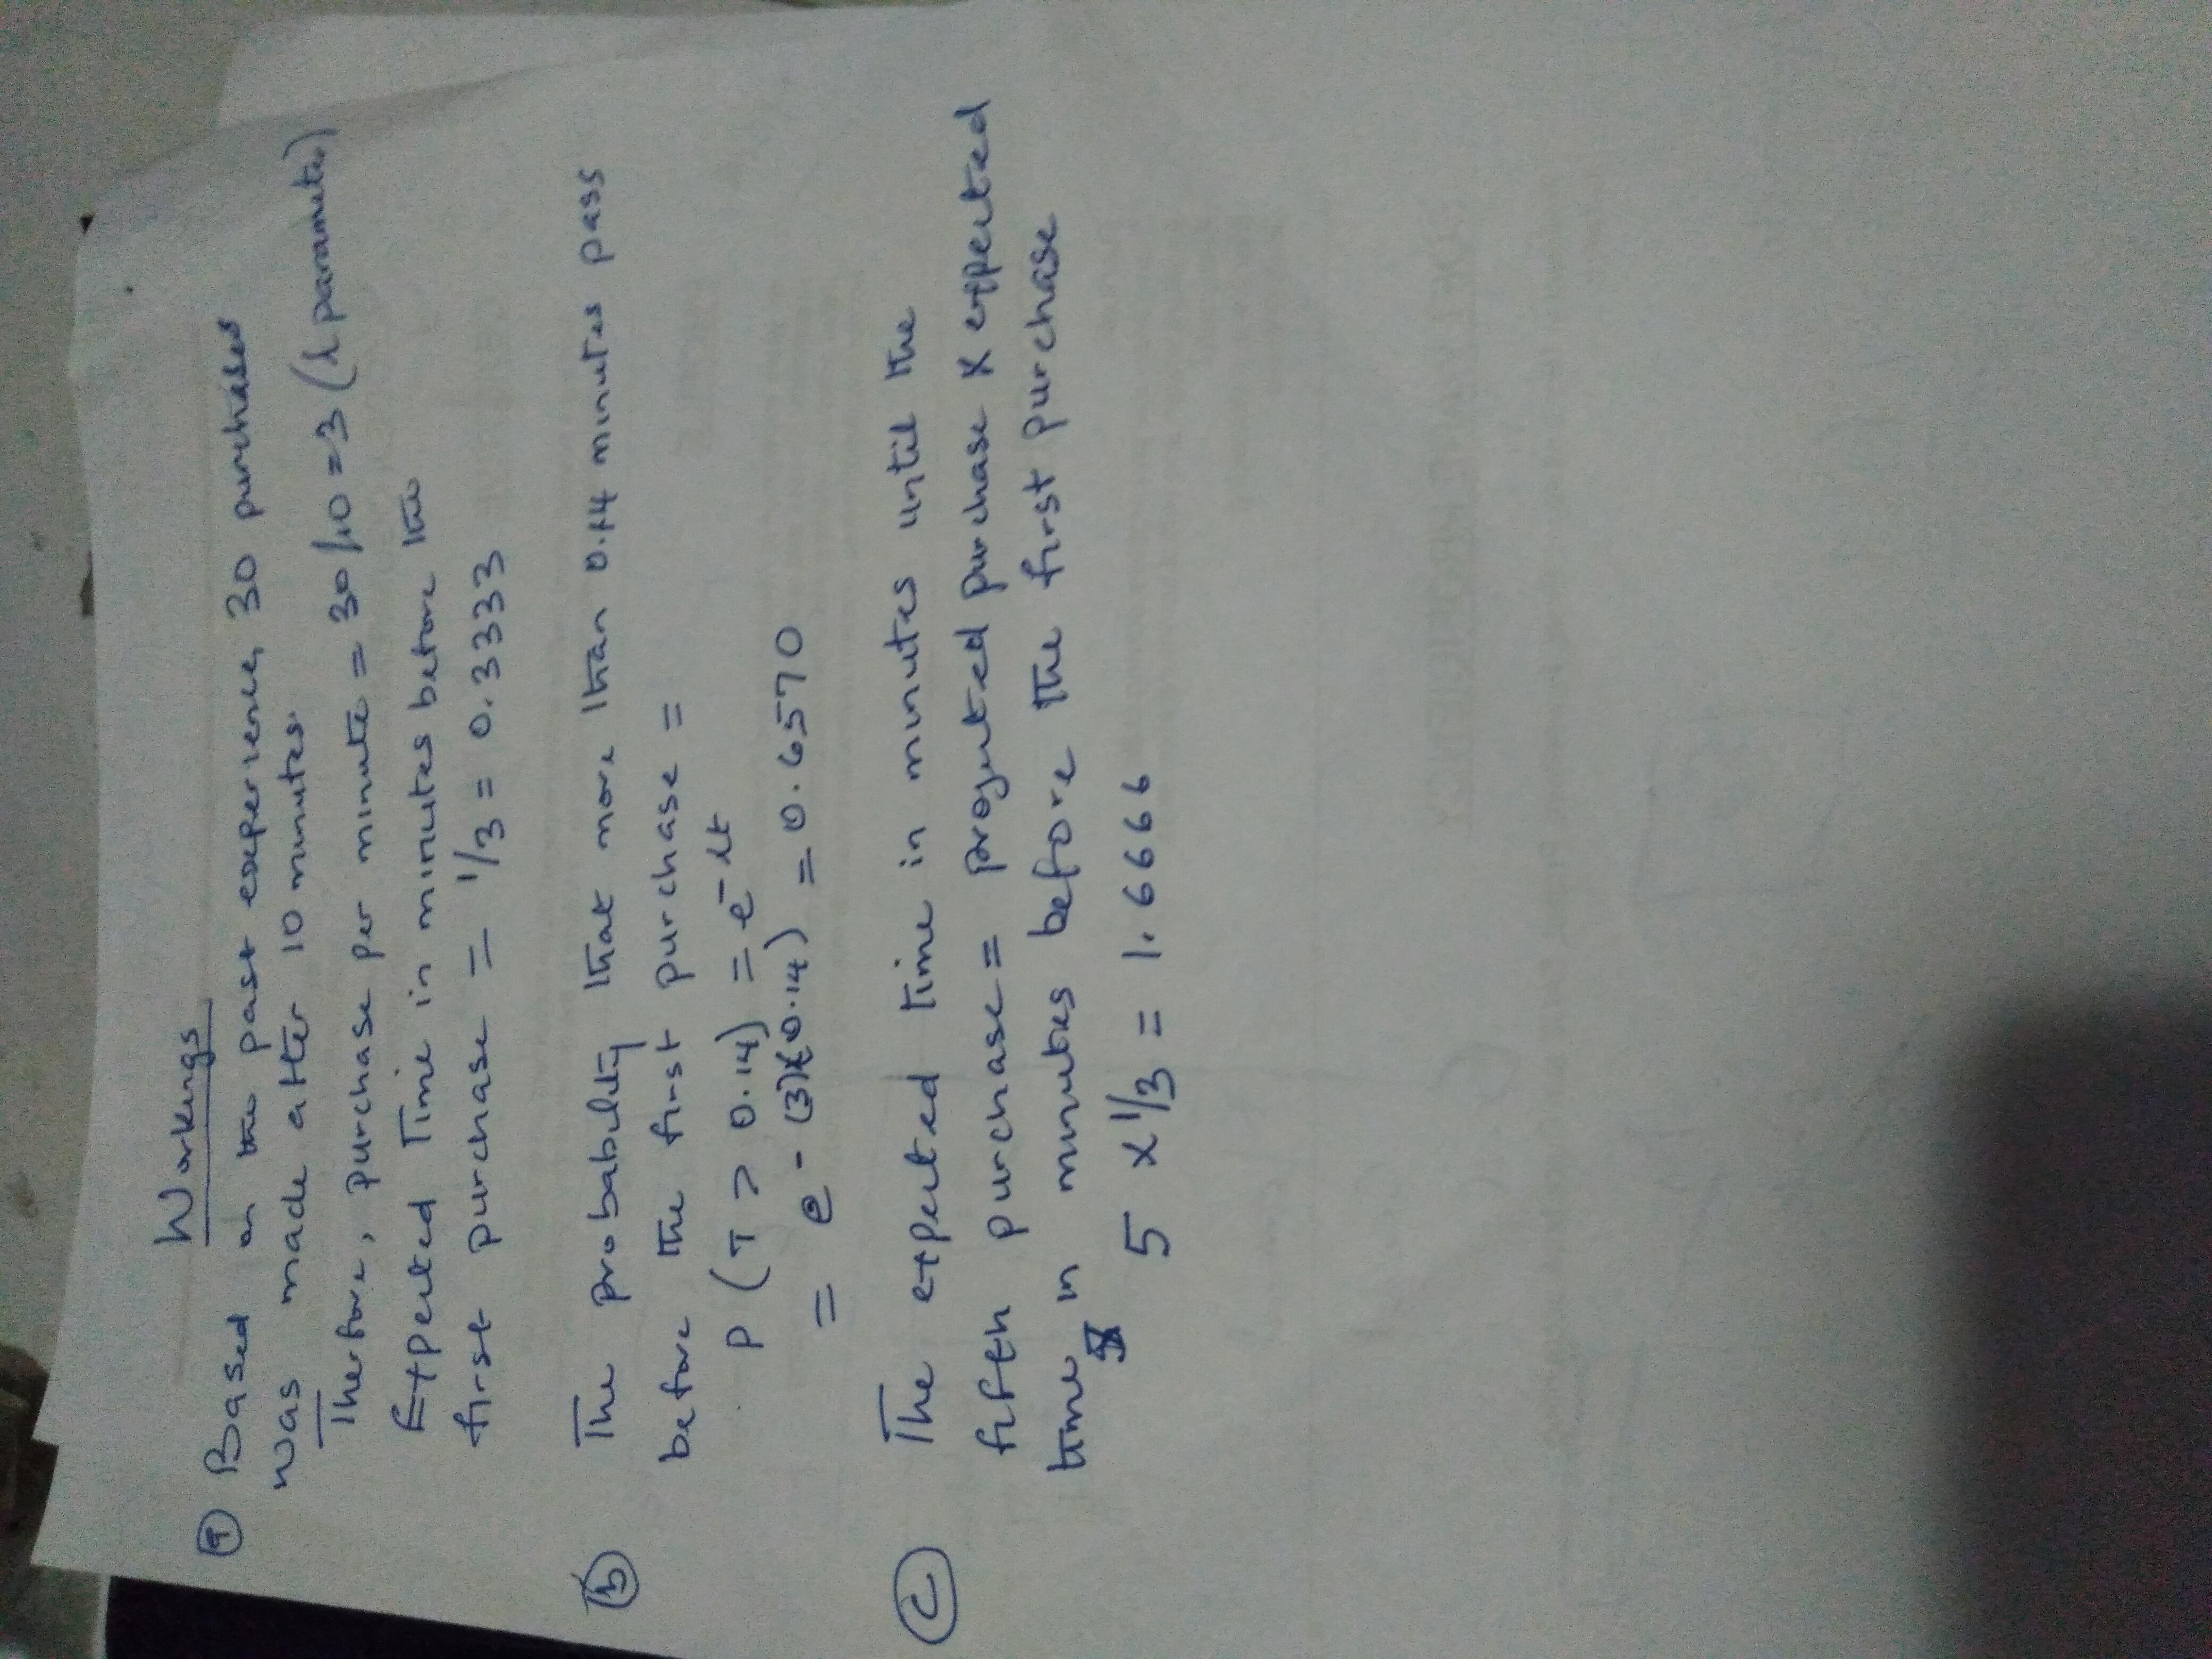 Workings
(a) Based on the past experience, 30 purchases
was made after 10 minutes.
Therfore, purchase per minute = 30/10 = 3 (λ parameter)
Expected Time in minutes before the
first purchase = 1/3 = 0.3333
(b) The probability that more than 0.14 minutes pass
before the first purchase =
P(T > 0.14) = e^-λt
= e-(3)(0.14) = 0.6570
(C) The expected time in minutes until the
fifth purchase = projected purchase x expected
time in minutes before the first purchase
5 x 1/3 = 1.6666